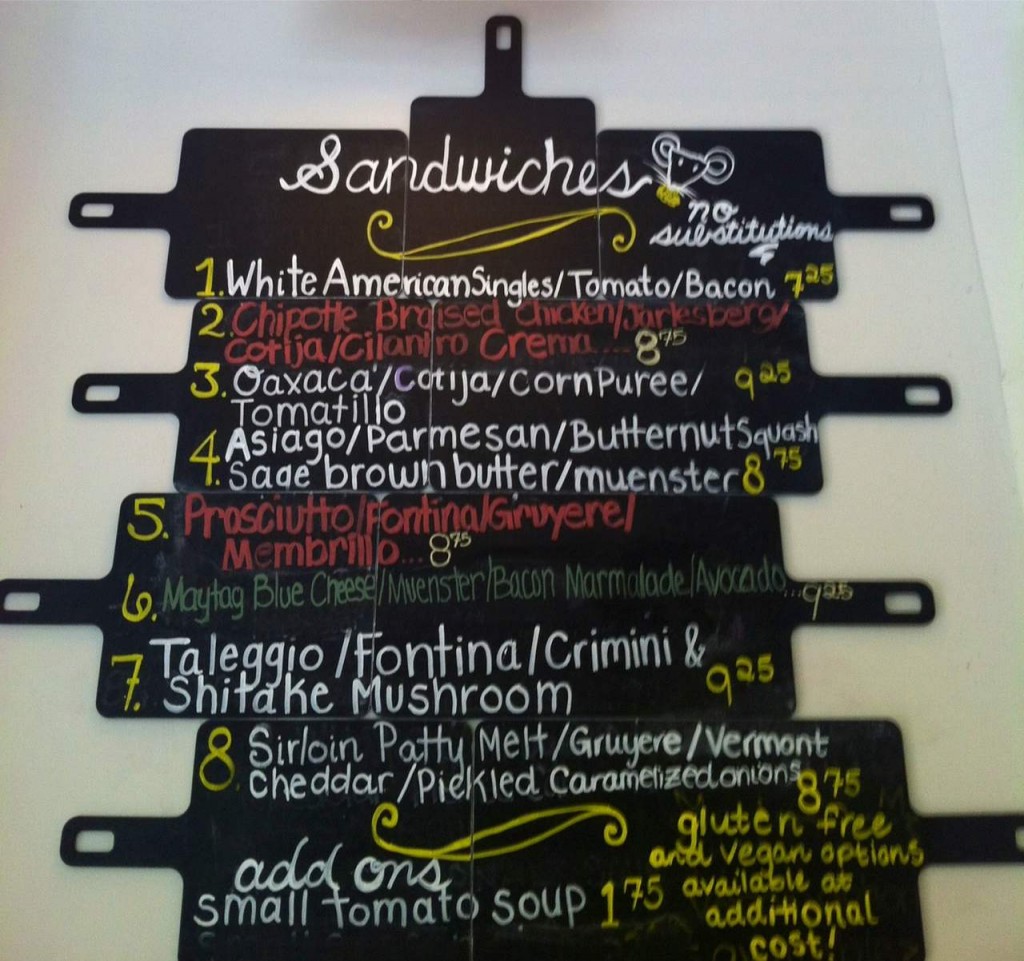 Sandwiches
no
substitutions
1. White American Singles/Tomato/Bacon 7.25
2. Chipotle Braised Chicken/Jarlesberg/
Cotija/Cilantro Crema... 8.75
3. Oaxaca/Cotija/Corn Puree/ 9.25
Tomatillo
4. Asiago/Parmesan/Butternut Squash
Sage brown butter/muenster 8.75
5. Prosciutto/Fontina/Gruyere/
Membrillo... 8.75
6. Maytag Blue Cheese/Muenster/Bacon Marmalade/Avocado...9.25
7. Taleggio/Fontina/Crimini &
Shitake Mushroom 9.25
8 Sirloin Patty Melt/Gruyere/Vermont
Cheddar/Pickled Caramelized onions 8.75
add ons
small tomato soup 1.75
gluten free
and vegan options
available at
additional
cost!